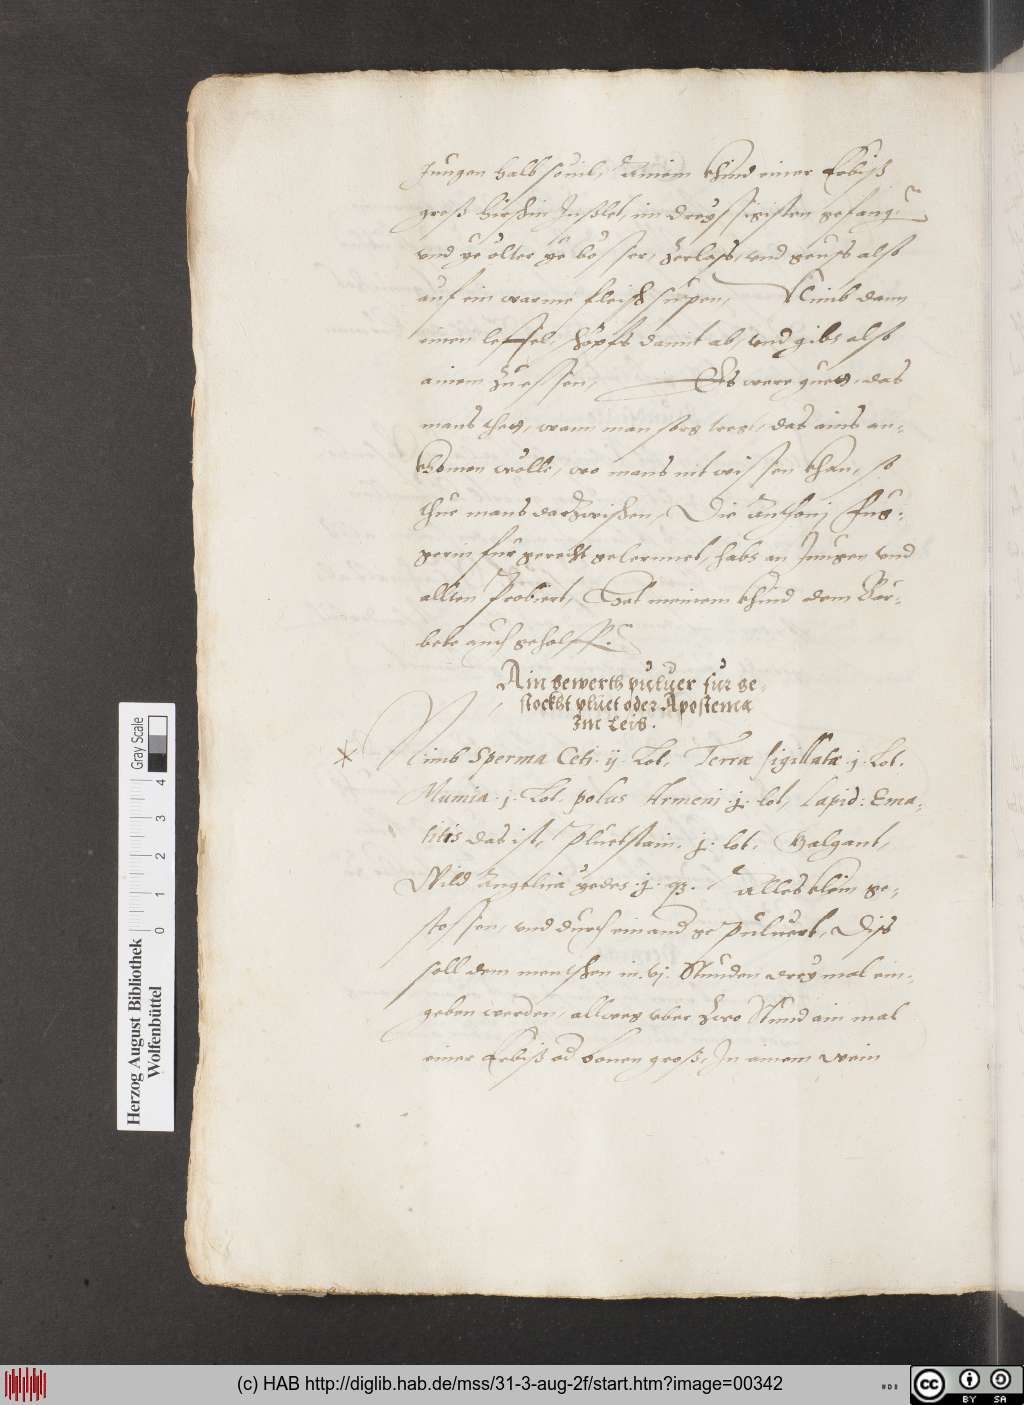 Jungen halb souil, Ainem khind einer Erbiß
groß hirschin Jnßlet, im dreyssigisten gefang:
vnd ye ölter ye bösser, zerlaß, vnd geuß also
auf ein warme fleisch suppen, Nimb dann
einen leffel, schöpffs damit ab, vnd gibs also
ainem zu essen, Es were guet, das
mans thet, wann man sorg tregt, das ains an-
khomen wölle, wo mans nit wissen khan, so
thue mans darzwischen, Die Anthonj Fug-
gerin für gerecht gelernnet, habs an Jungen vnd
allten Probiert, Hat meinem khind dem Bar-
bele auch geholffen.
Ain bewerth puluer für ge-
stockht pluet oder Apostema
Im Leib.
Nimb Sperma Ceti. ij. Lot. Terræ sigillatæ .j. Lot.
Mumia .j. Lot. polus Armeni .j. lot, Lapid: Ema-
titis das ist, Pluetstain .j. lot. Galgant,
Wild Angelica yedes .j. qz. Alles klein ge-
stossen, vnd durch einand gepuluert, Diß
soll dem menschen in .vj. Stunden drey mal ein-
geben werden, allweg vber zwo Stund ain mal
einer Erbiß od bonen groß, Jn ainem wein
Gray Scale
0 1 2 3 4
Herzog August Bibliothek
Wolfenbüttel
(c) HAB http://diglib.hab.de/mss/31-3-aug-2f/start.htm?image=00342
cc BY SA